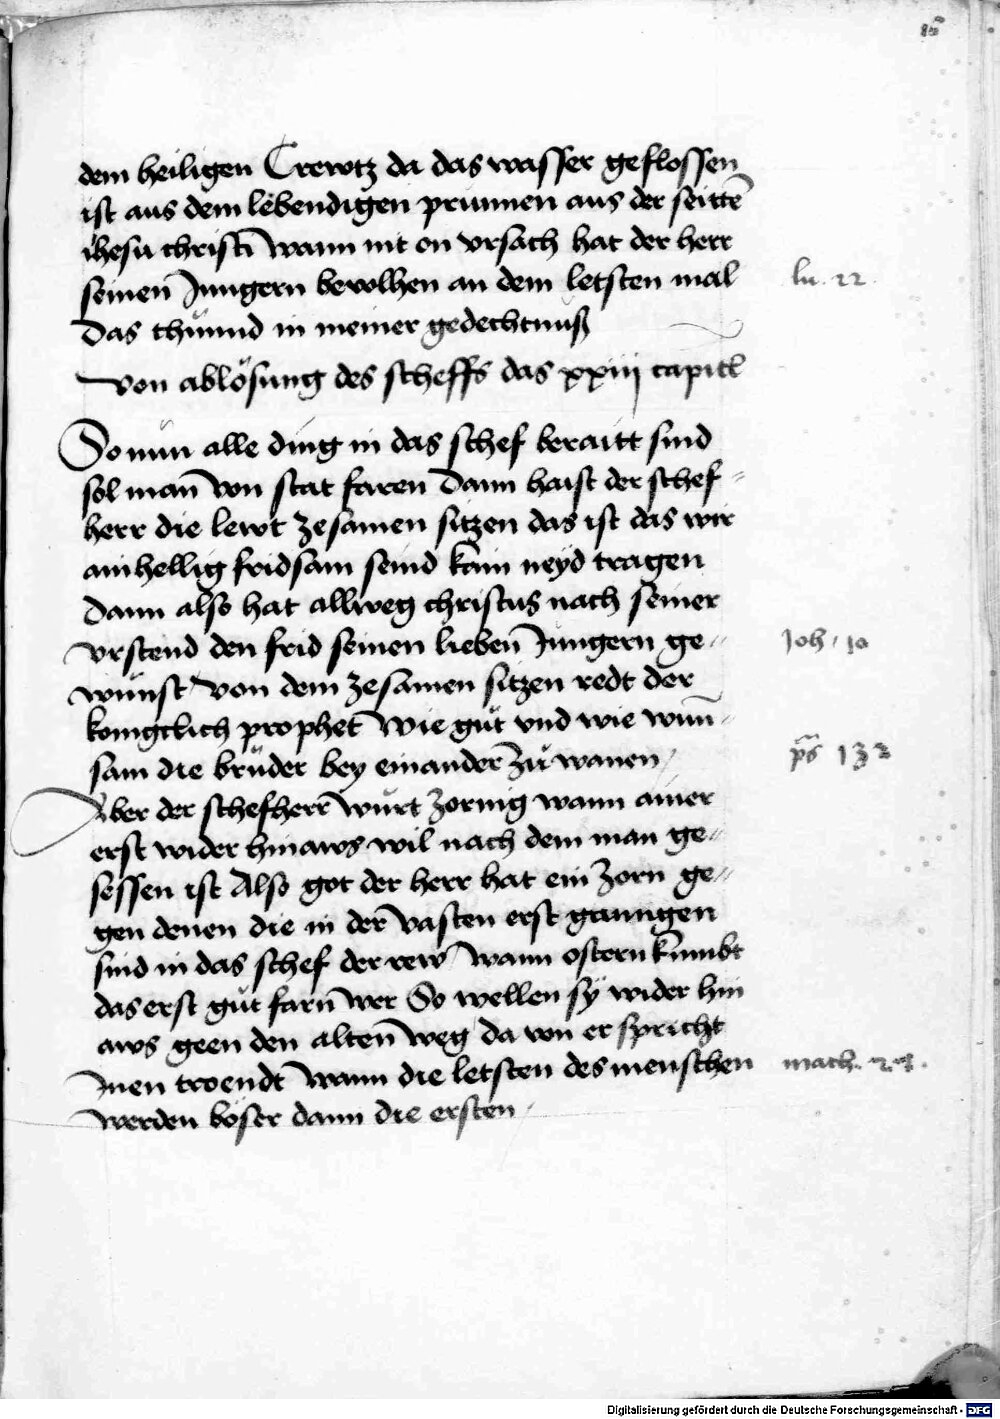 dem heiligen Crewtz da das wasser geflossen
ist aus dem lebendigen prunnen aus der seittē
ihesu christi wann nit on vrsach hat der herr
seinen Jungern bevolhen an dem letsten mal
lu. 22.
Das thuͤnnd in meiner gedechtnuß
von ablösung des scheffs das xxiij capitl
So nun alle ding in das schef beraitt sind
sol man von stat faren Dann haist der schef-
herr die lewt zesamen sitzen das ist das wir
ainhellig fridsam seind kain neyd tragen
Dann also hat allweg christus nach seiner
vrstend den frid seinen lieben Jungern ge-
Joh. 10
wunst von dem zesamen sitzen redt der
konigclich prophet Wie guͤt vnd wie wun-
sam die bruͤder bey einander zuͤ wanen
ps 132
Aber der schefherr wurt zornig wann ainer
erst wider hinaws wil nach dem man ge-
sessen ist Also got der herr hat ein zorn ge-
gen denen die in der vasten erst ganngen
sind in das schef der rew wann ostern kumbt
das erst guͤt farn wer So wellen sy wider hin
aws geen den alten weg da von er spricht
Inen troendt Wann die letsten des menschen
math.
werden böser dann die ersten
Digitalisierung gefördert durch die Deutsche Forschungsgemeinschaft - DFG